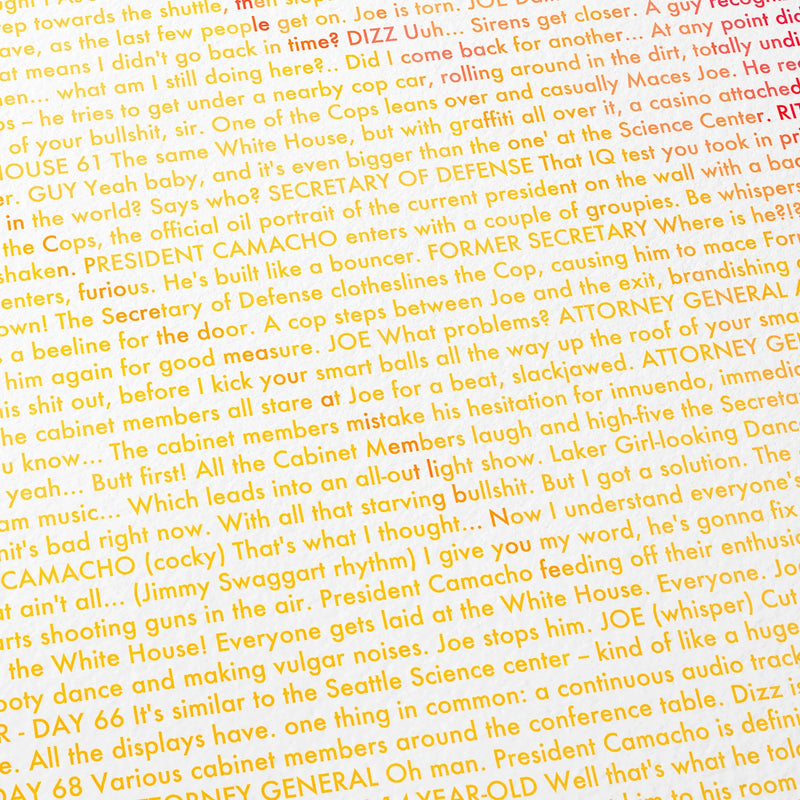 ught I As
ep towards the shuttle, then stop
ave, as the last few people get on. Joe is torn. JOE
at means I didn't go back in time? DIZZ Uuh... Sirens get closer. A guy recogni
hen... what am I still doing here?.. Did I come back for another... At any point did
ps – he tries to get under a nearby cop car, rolling around in the dirt, totally undi
of your bullshit, sir. One of the Cops leans over and casually Maces Joe. He rec
HOUSE 61 The same White House, but with graffiti all over it, a casino attached
er. GUY Yeah baby, and it's even bigger than the one' at the Science Center. RIT
in the world? Says who? SECRETARY OF DEFENSE That IQ test you took in pr
the Cops, the official oil portrait of the current president on the wall with a bad
shaken. PRESIDENT CAMACHO enters with a couple of groupies. Be whispers
enters, furious. He's built like a bouncer. FORMER SECRETARY Where is he?!?
own! The Secretary of Defense clotheslines the Cop, causing him to mace Form
s a beeline for the door. A cop steps between Joe and the exit, brandishing
him again for good measure. JOE What problems? ATTORNEY GENERAL A
his shit out, before I kick your smart balls all the way up the roof of your sma
he cabinet members all stare at Joe for a beat, slackjawed. ATTORNEY GEN
u know... The cabinet members mistake his hesitation for innuendo, immedic
yeah... Butt first! All the Cabinet Members laugh and high-five the Secretar
am music... Which leads into an all-out light show. Laker Girl-looking Danc
hit's bad right now. With all that starving bullshit. But I got a solution. The
CAMACHO (cocky) That's what I thought... Now I understand everyone's
at ain't all... (Jimmy Swaggart rhythm) I give you my word, he's gonna fix
arts shooting guns in the air. President Camacho feeding off their enthusia
the White House! Everyone gets laid at the White House. Everyone. Joe
ooty dance and making vulgar noises. Joe stops him. JOE (whisper) Cut
R - DAY 66 It's similar to the Seattle Science center – kind of like a huge
e. All the displays have. one thing in common: a continuous audio track
DAY 68 Various cabinet members around the conference table. Dizz is
ATTORNEY GENERAL Oh man. President Camacho is defini
YEAR-OLD Well that's what he told
him to his room